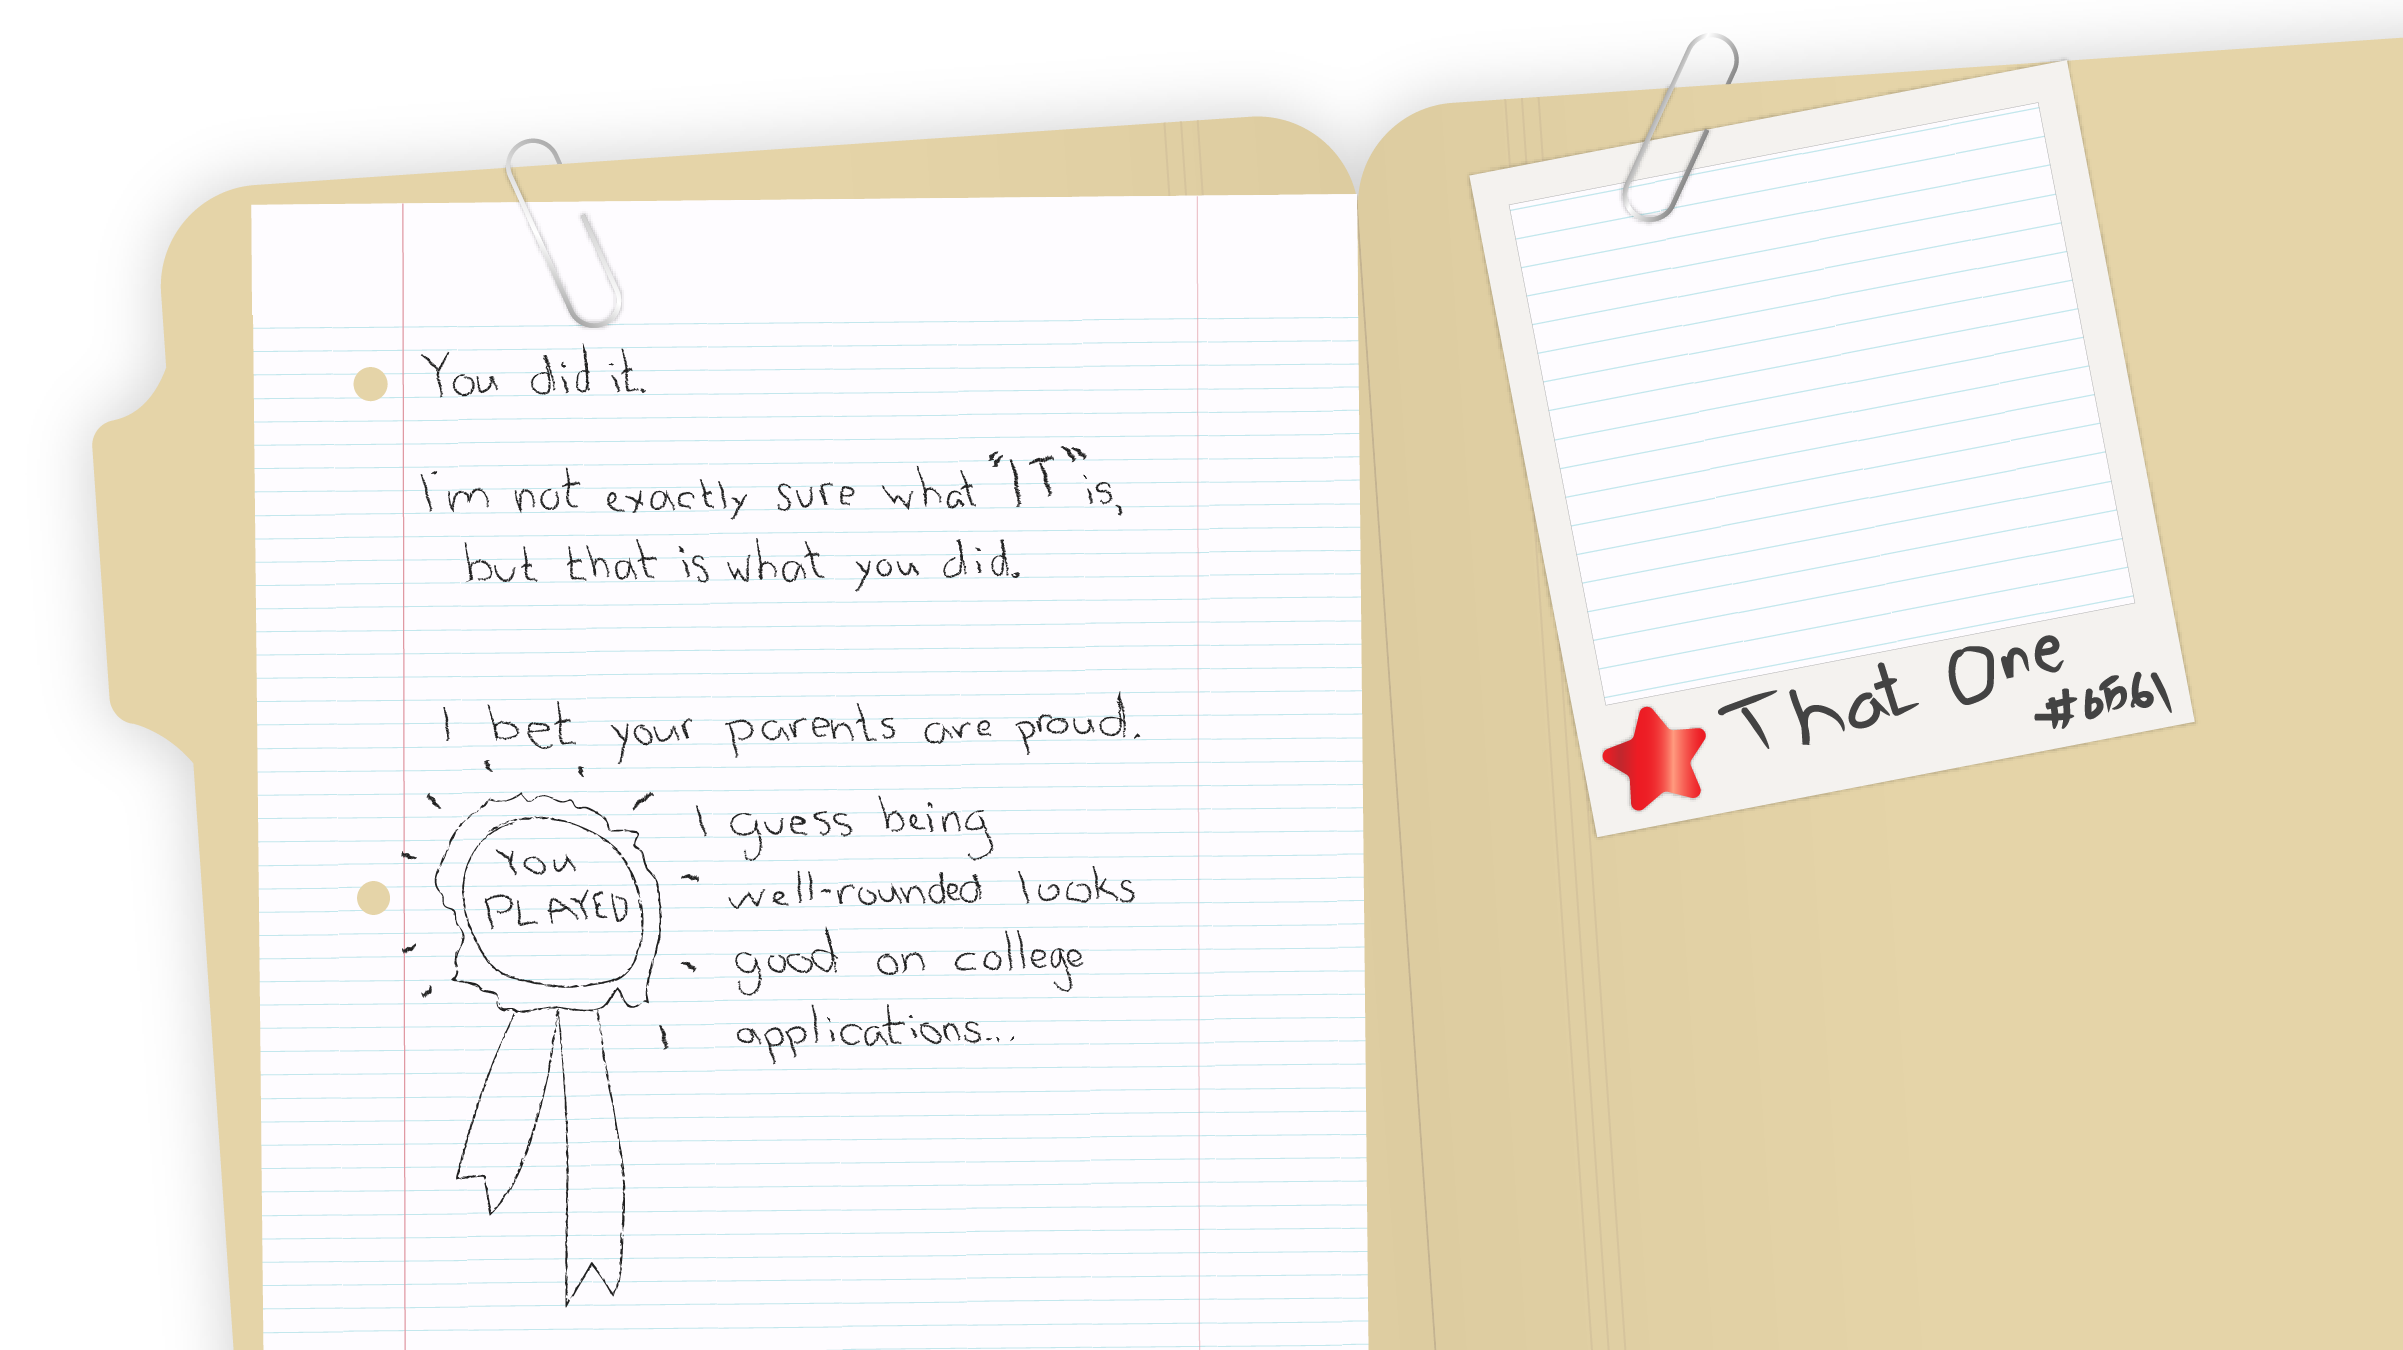 You did it.
I'm not exactly sure what "IT" is,
but that is what you did.
I bet your parents are proud.
YOU
PLAYED
I guess being
well-rounded looks
good on college
applications...
That One
#6561